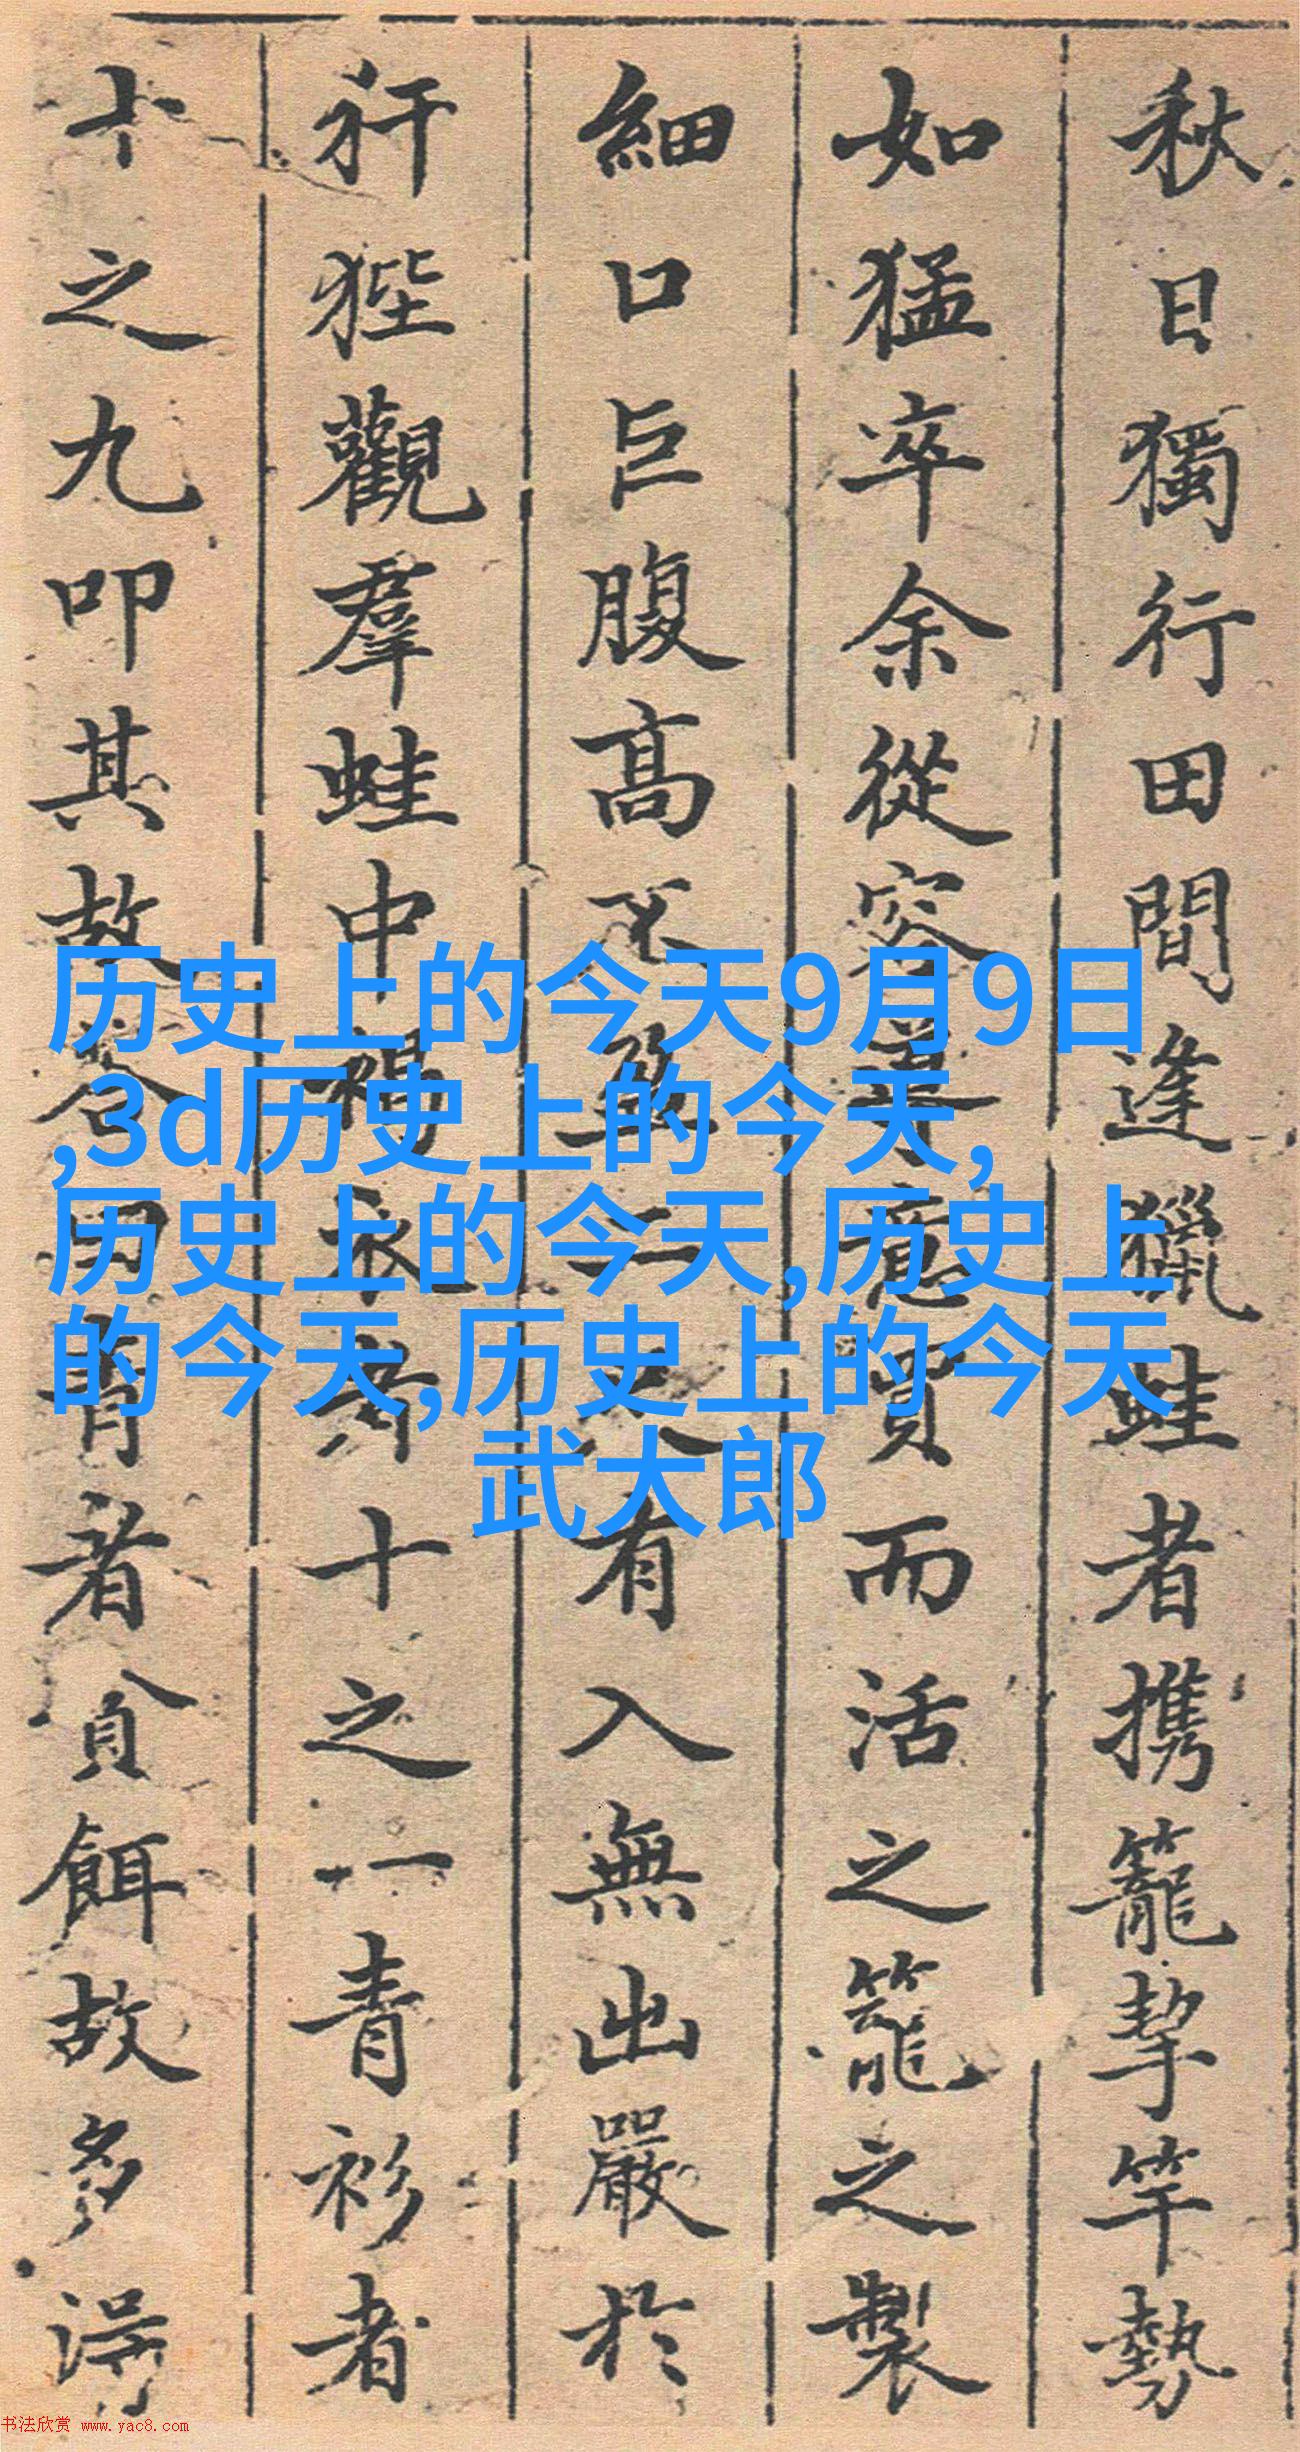 秋日獨行田間逢獵蛙者携籠挈竿勢
如猛卒余從容善意買而活之籠之製
細口巨腹高不盈二尺有入無出嚴於
犴狴觀羣蛙中褐衣者十之一青衫者
十之九叩其故答曰青者貪餌故多得
历史上的今天9月9日
,3d历史上的今天,
历史上的今天,历史上
的今天,历史上的今天
武大郎
书法欣赏 www.yac8.com